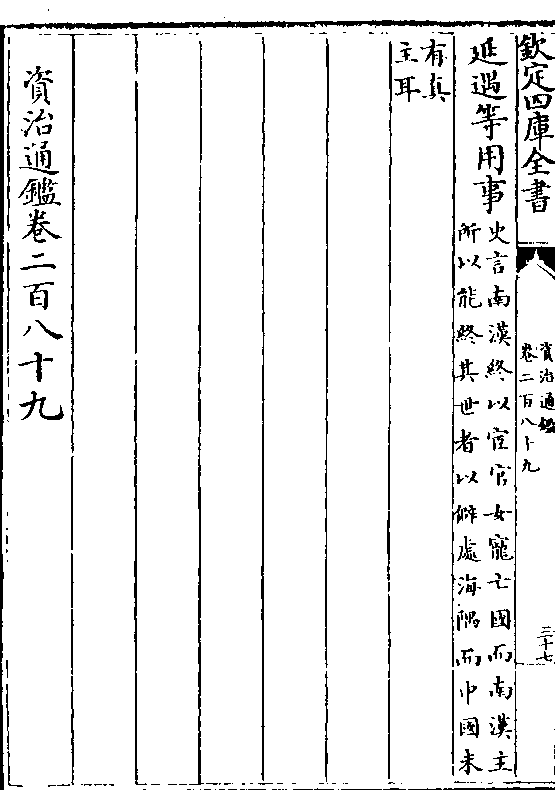 欽定四庫全書
資治通鑑
卷二百八十九
三十七
延遇等用事
史言南漢終以宦官女寵亡國而南漢主
所以能終其世者以僻處海隅而中國未
有真
主耳
資治通鑑卷二百八十九